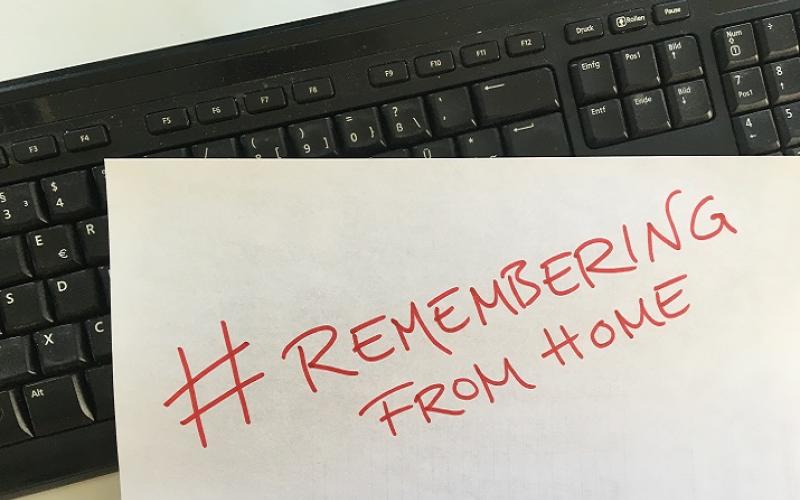 Druck
Rollen
Pause
F3
F4
F5
F6
F7
F8
F9
F10
F11
F12
§ 3 ³
$ 4
( 8 [
) 9 ]
= 0 }
? ß \
Einfg
Pos1
Bild ↑
Num
÷
Entf
Ende
Bild ↓
7 Pos1
8
E €
R
Ü
4
5
S
D
X
C
Alt
#REMEMBERING
FROM HOME